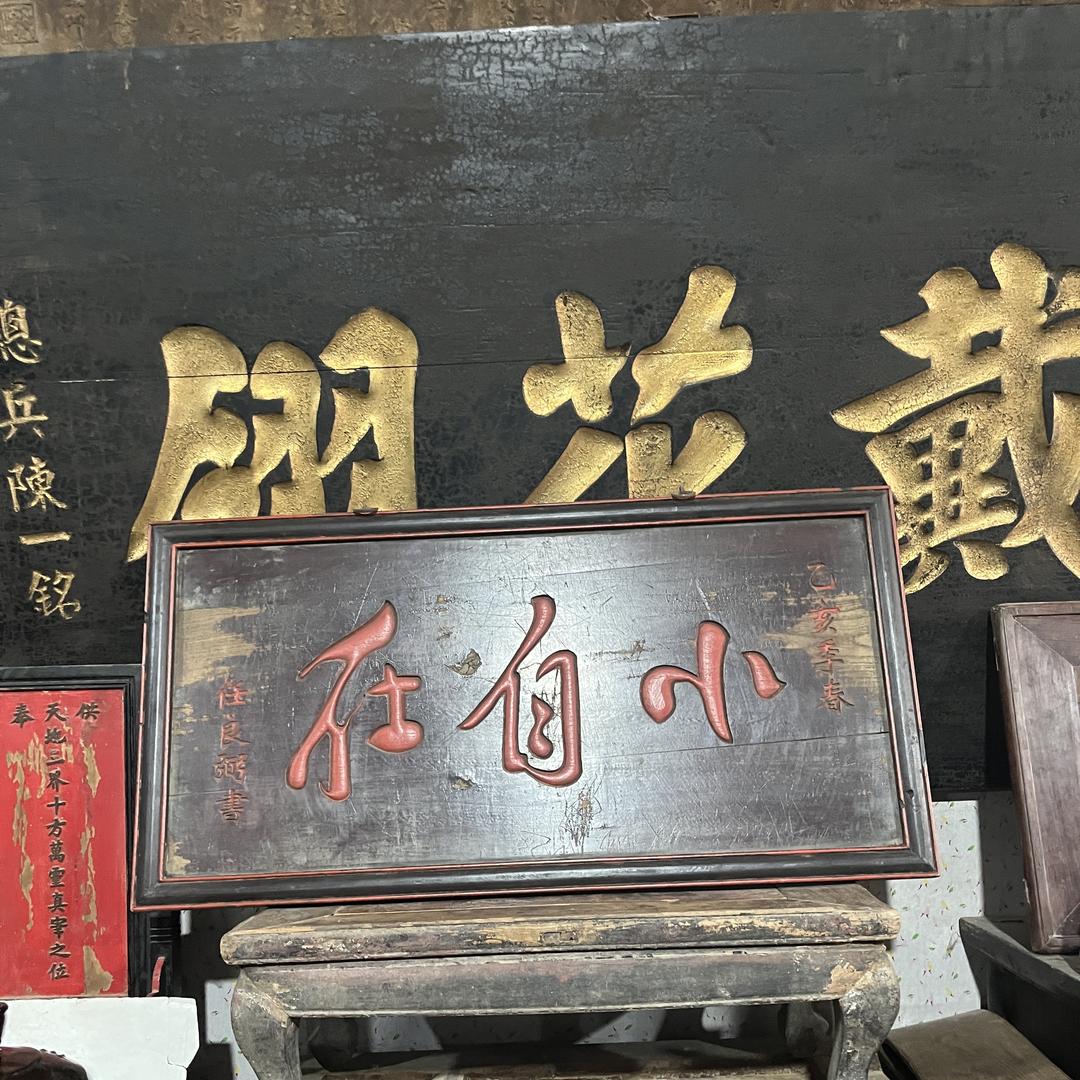 戴花
總兵陳一銘
乙亥季春
小自在
任良弼書
供
天地三界十方萬靈真宰之位
奉